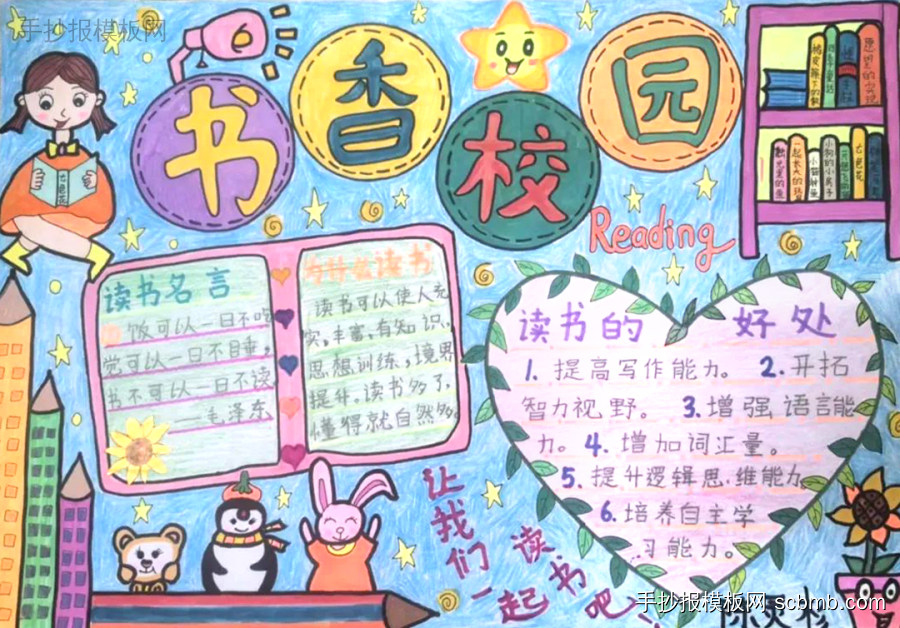 手抄报模板网
书香校园
Reading
七色花
七色花
读书名言
饭可以一日不吃
觉可以一日不睡,
书不可以一日不读
——毛泽东
为什么读书
读书可以使人充
实,丰富,有知识,
思想训练,境界
提升。读书多了,
懂得就自然多。
读书的好处
1. 提高写作能力。 2. 开拓
智力视野。 3. 增强语言能
力。 4. 增加词汇量。
5. 提升逻辑思维能力
6. 培养自主学
习能力。
让我们一起读书吧
手抄报模板网 scbmb.com